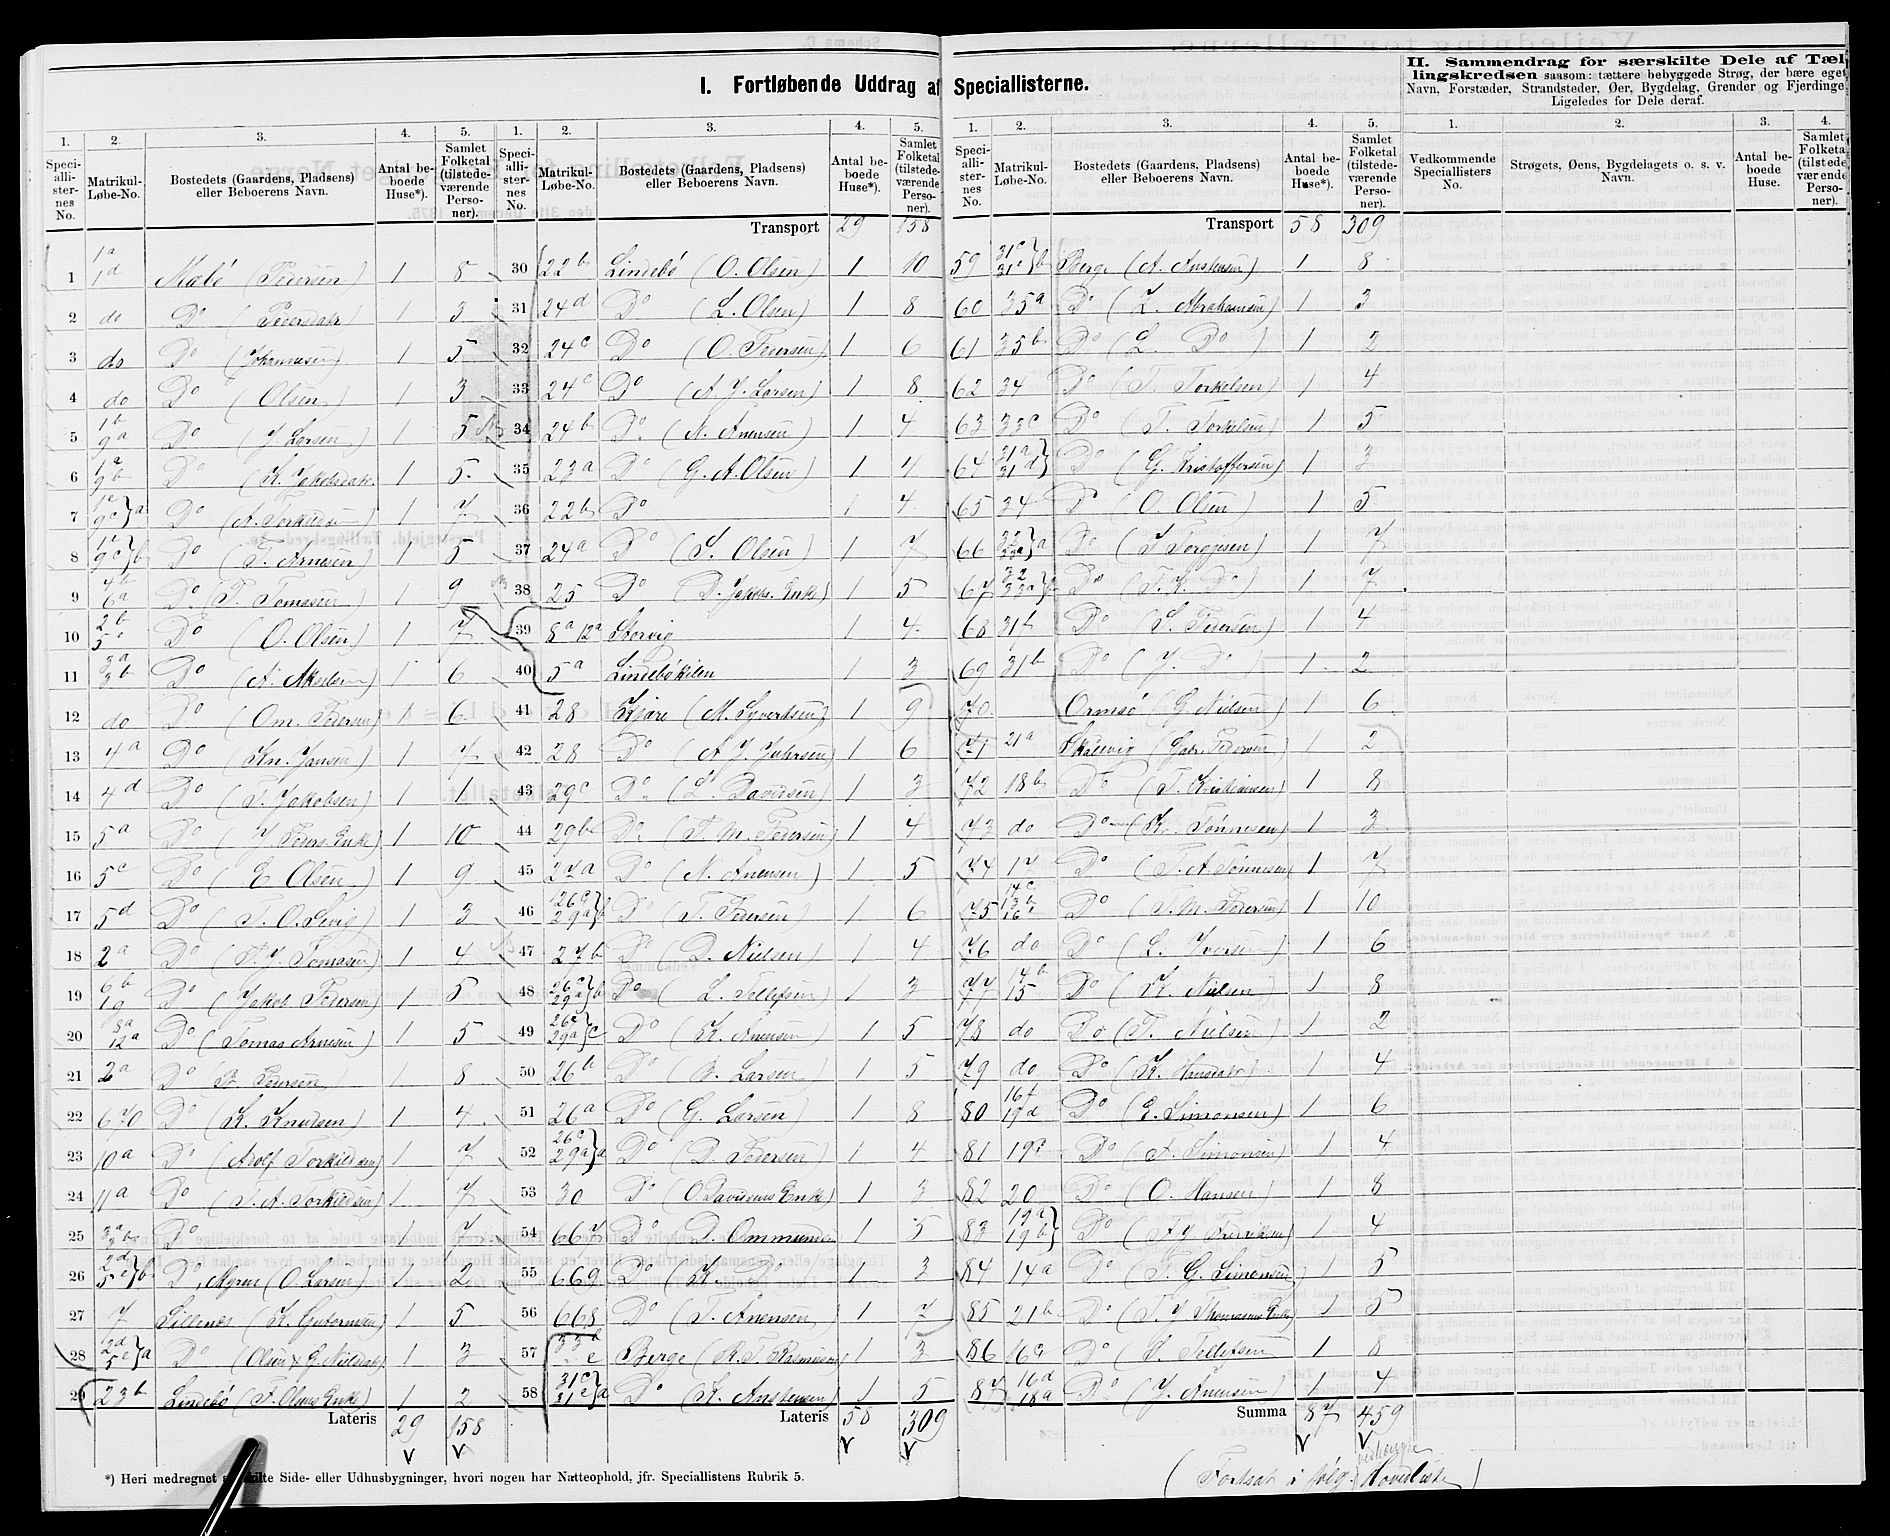 I. Fortløbende Uddrag af Speciallisterne.
II. Sammendrag for særskilte Dele af Tæl-
lingskredsen saasom: tættere bebyggede Strøg, der bære eget
Navn, Forstæder, Strandsteder, Øer, Bygdelag, Grender og Fjerdinge
Ligeledes for Dele deraf.
1. 2. 3. 4. 5.
Speci-alli-ster-nes No. Matrikul-Løbe-No. Bostedets (Gaardens, Pladsens) eller Beboerens Navn. Antal be-boede Huse*). Samlet Folketal (tilstede-værende Perso-ner).
1 1a 1d Malø (Pedersen) 1 8
2 do Do (Pedersdatr 1 3
3 do Do (Johannesen) 1 5
4 do Do (Olsen) 1 3
5 1b 9a Do (J Larsen) 1 5
6 1a 9b Do (K. Jakobsdatr. 1 5
7 1c 9c}a Do (A. Torkildsen) 1 7
8 1c 9c}b Do (T. Arnesen) 1 5
9 4b 6a Do (T. Tomasen) 1 9
10 2b 5c Do (O. Olsen) 1 7
11 3a 3b Do (A. Akselsen) 1 6
12 do Do (Om. Pedersen) 1 6
13 4a Do (Kn. Jansen) 1 7
14 4d Do (T. Jakobsen) 1 1
15 5a Do (J Peders. Enke) 1 10
16 5c Do (E Olsen) 1 9
17 5d Do (T. O. Sevig) 1 3
18 2a Do (T. J. Tomasen) 1 4
19 6b 19 Do (Jakob Pedersen) 1 5
20 8a 12a Do (Tomas Arnesen) 1 5
21 2a Do (B. Pedersen) 1 8
22 670 Do (K. Knutsen) 1 4
23 10a Do (Adolf Torkildsen) 1 7
24 11a Do (T. A. Torkildsen) 1 7
25 3a 3b Do 1 7
26 2d 5e}b Do, Myren (O. Larsen) 1 2
27 7 Sillenes (K. Gutormsen) 1 5
28 2d 5e}a Do (Olsen & G. Nielsdatr) 1 3
29 23b Lindebø (T. Olsens Enke) 1 2
Lateris 29 158
*) Heri medregnet særskilte Side- eller Udhusbygninger, hvori nogen har Natteophold, jfr. Speciallistens Rubrik 5.
1. 2. 3. 4. 5.
Speci-alli-ster-nes No. Matrikul-Løbe-No. Bostedets (Gaardens, Pladsens) eller Beboerens Navn. Antal be-boede Huse*). Samlet Folketal (tilstede-værende Perso-ner).
Transport 29 158
30 22b Lindebø (O. Olsen) 1 10
31 24d Do (L. Olsen) 1 8
32 24c Do (O. Pedersen) 1 6
33 24c Do (A. J. Larsen) 1 8
34 24b Do (N. Anensen) 1 4
35 23a Do (G. A. Olsen) 1 4
36 22b Do 1 4
37 24a Do (S. Olsen) 1 7
38 25 Do (D. Jakobs. Enke) 1 5
39 8a 12a Storvig 1 4
40 5a Lindebøkilen 1 3
41 28 Kjøre (M. Syvertsen) 1 9
42 28 Do (A J. Jakobsen) 1 6
43 29c Do (L. Davidsen) 1 3
44 29b Do (T. M. Pedersen) 1 4
45 27a Do (N. Anensen) 1 5
46 26c 29a}b Do (T. Pedersen) 1 6
47 27b Do (D. Nielsen) 1 4
48 26c 29a}b Do (L. Tellefsen) 1 3
49 26c 29a}c Do (K. Anensen) 1 5
50 26b Do (B. Larsen) 1 5
51 26a Do (G. Larsen) 1 8
52 26c 29a}a Do (D. Pedersen) 1 4
53 30 Do (O Davidsens Enke) 1 3
54 667 Do (D. Ommundsen 1 5
55 669 Do (K. Do) 1 3
56 668 Do (T. Anensen) 1 7
57 33b e Berge (R. T. Rasmussen) 1 3
58 31c 31e}a Do (K. Anstensen) 1 5
Lateris 58 309
1. 2. 3. 4. 5.
Speci-alli-ster-nes No. Matrikul-Løbe-No. Bostedets (Gaardens, Pladsens) eller Beboerens Navn. Antal be-boede Huse*). Samlet Folketal (tilstede-værende Perso-ner).
Transport 58 309
59 31c 31e}b Berge (A. Anstensen) 1 8
60 35a Do (L. Abrahamsen) 1 3
61 35b Do (L. Do) 1 2
62 34 Do (T. Torkelsen) 1 4
63 33c Do (T. Torkelsen) 1 5
64 31a 31d} Do (G. Kristoffersen) 1 3
65 34 Do (O. Olsen) 1 5
66 32 33a}a Do (T Torgjusen) 1 7
67 32 33a}b Do (T. K. Do) 1 7
68 31b Do (S. Pedersen) 1 4
69 31b Do (J. Do) 1 2
70 Ormsø (G. Nielsen) 1 6
71 21a Skalevig (Gabr. Pedersen 1 2
72 18b Do (T. Kristiansen) 1 8
73 do Do (K. Tønnesen) 1 3
74 17 Do (T. A. Tønnesen) 1 7
75 14c 13b 16c Do (T. M. Pedersen) 1 10
76 do Do (L. Iversen) 1 6
77 14b 15 Do (K. Nielsen) 1 8
78 do Do (T. Nielsen) 1 2
79 do Do (K. Hansdatr) 1 4
80 16f 19d Do (E. Simonsen) 1 6
81 19c Do (A. Simonsen) 1 4
82 20 Do (O. Hansen) 1 8
83 19a 19b} Do (A J Fredriksen) 1 4
84 14a Do (T. G. Simonsen) 1 5
85 21b Do (T. J Thomasens Enke) 1 5
86 16c Do (H. Tellefsen 1 8
87 16d 18a Do (J. Anensen) 1 4
Summa 87 459
(Fortsat i følg. vedhængte Hovedliste)
1. 2. 3. 4.
Vedkommende Speciallisters No. Strøgets, Øens, Bygdelagets o. s. v. Navn. Antal be-boede Huse. Samlet Folketal (tilstede-værende Perso-ner).